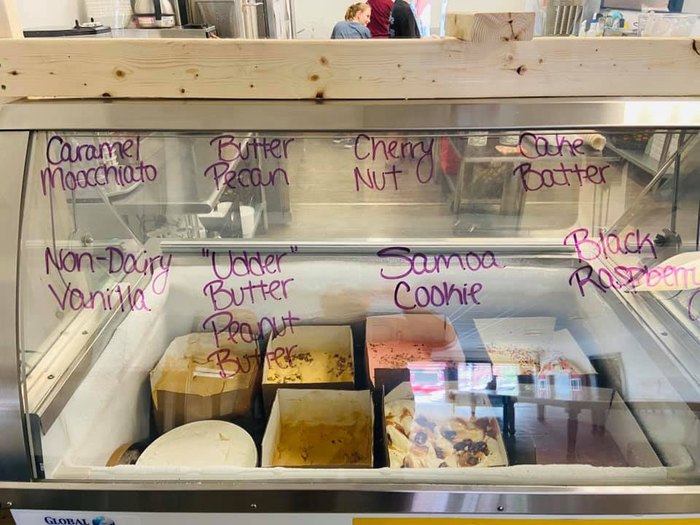 Caramel
Moocchiato
Butter
Pecan
Cherry
Nut
Cake
Batter
Non-Dairy
Vanilla
"Udder"
Butter
Peanut
Butter
Samoa
Cookie
Black
Raspberry
GLOBAL